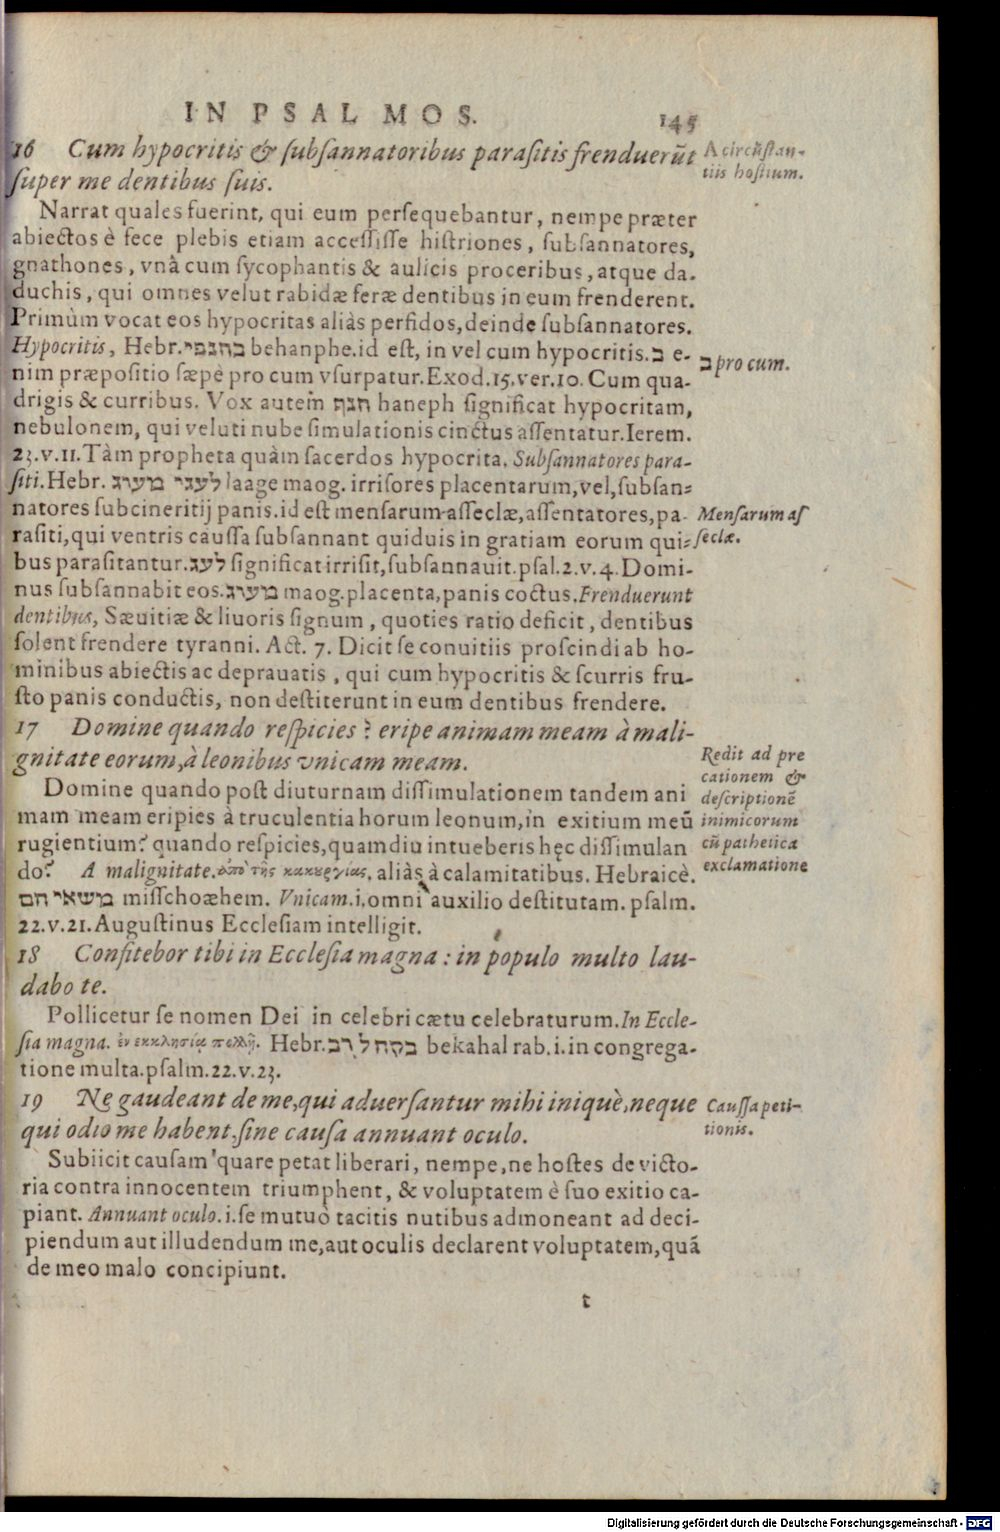 IN PSALMOS. 145
16 Cum hypocritis & ſubſannatoribus paraſitis frenduerūt
ſuper me dentibus ſuis.
A circūſtan-
tiis hoſtium.
Narrat quales fuerint, qui eum perſequebantur, nempe præter
abiectos è fece plebis etiam acceſſiſſe hiſtriones, ſubſannatores,
gnathones, vnâ cum ſycophantis & aulicis proceribus, atque da-
duchis, qui omnes velut rabidæ feræ dentibus in eum frenderent.
Primùm vocat eos hypocritas aliàs perfidos, deinde ſubſannatores.
Hypocritis, Hebr. בחנפי behanphe.id eſt, in vel cum hypocritis. ב e-
nim præpoſitio ſæpè pro cum vſurpatur. Exod. 15. ver. 10. Cum qua-
ב pro cum.
drigis & curribus. Vox autem חנף haneph ſignificat hypocritam,
nebulonem, qui veluti nube ſimulationis cinctus aſſentatur. Ierem.
23. v. 11. Tàm propheta quàm ſacerdos hypocrita. Subſannatores para-
ſiti. Hebr. לעגי מעוג laage maog. irriſores placentarum, vel, ſubſan-
natores ſubcineritij panis. id eſt menſarum aſſeclæ, aſſentatores, pa-
raſiti, qui ventris cauſſa ſubſannant quiduis in gratiam eorum qui-
Menſarum aſ
ſeclæ.
bus paraſitantur. לעג ſignificat irriſit, ſubſannauit. pſal. 2. v. 4. Domi-
nus ſubſannabit eos. מעוג maog. placenta, panis coctus. Frenduerunt
dentibus, Sæuitiæ & liuoris ſignum, quoties ratio deficit, dentibus
ſolent frendere tyranni. Act. 7. Dicit ſe conuitiis proſcindi ab ho-
minibus abiectis ac deprauatis, qui cum hypocritis & ſcurris fru-
ſto panis conductis, non deſtiterunt in eum dentibus frendere.
17 Domine quando reſpicies? eripe animam meam à mali-
gnitate eorum, à leonibus vnicam meam.
Redit ad pre
cationem &
deſcriptionē
inimicorum
cū pathetica
exclamatione
Domine quando poſt diuturnam diſſimulationem tandem ani
mam meam eripies à truculentia horum leonum, in exitium meū
rugientium? quando reſpicies, quamdiu intueberis hęc diſſimulan
do? A malignitate. ἀπὸ τῆς κακουργίας, aliàs à calamitatibus. Hebraicè.
משאיהם miſſchoæhem. Vnicam. i. omni auxilio deſtitutam. pſalm.
22. v. 21. Auguſtinus Eccleſiam intelligit.
18 Confitebor tibi in Eccleſia magna: in populo multo lau-
dabo te.
Pollicetur ſe nomen Dei in celebri cætu celebraturum. In Eccle-
ſia magna. ἐν ἐκκλησίᾳ πολλῇ. Hebr. בקהל רב bekahal rab. i. in congrega-
tione multa. pſalm. 22. v. 23.
19 Ne gaudeant de me, qui aduerſantur mihi iniquè, neque
qui odio me habent, ſine cauſa annuant oculo.
Cauſſa peti-
tionis.
Subiicit cauſam quare petat liberari, nempe, ne hoſtes de victo-
ria contra innocentem triumphent, & voluptatem è ſuo exitio ca-
piant. Annuant oculo. i. ſe mutuò tacitis nutibus admoneant ad deci-
piendum aut illudendum me, aut oculis declarent voluptatem, quā
de meo malo concipiunt.
t
Digitalisierung gefördert durch die Deutsche Forschungsgemeinschaft - DFG